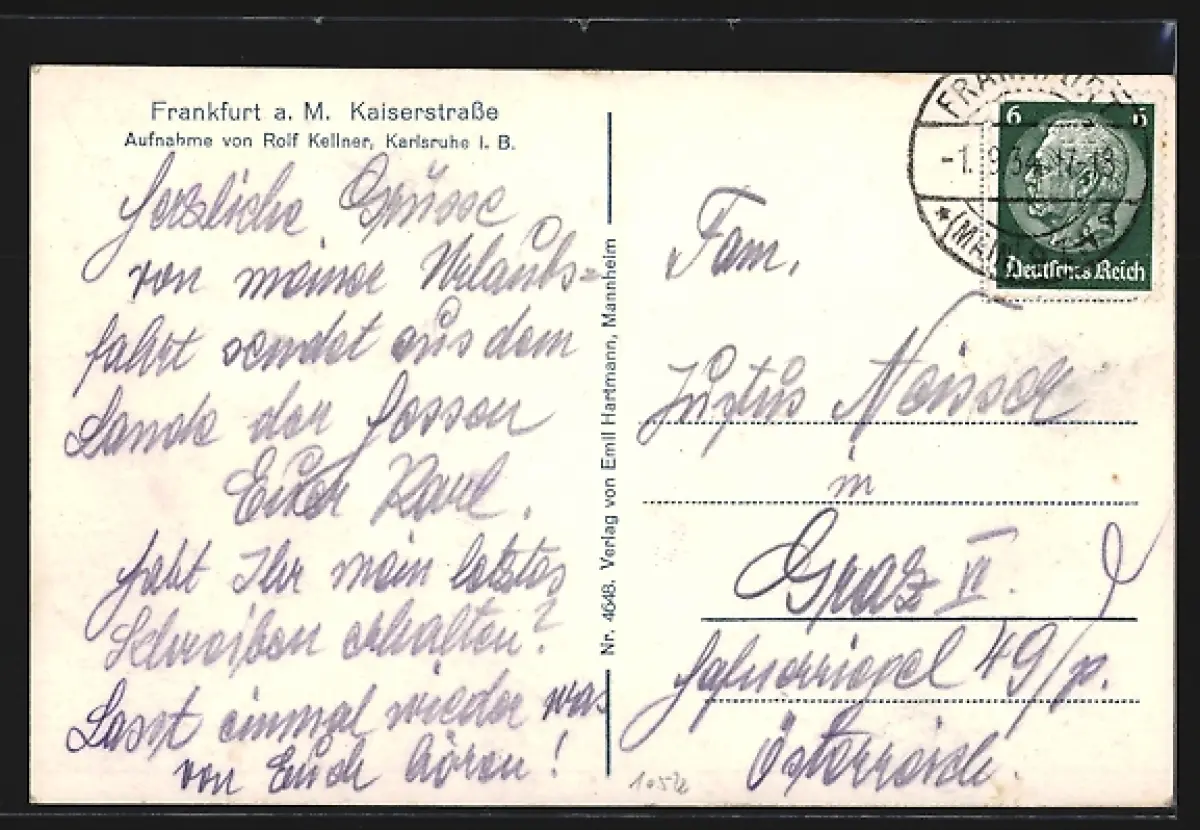 Frankfurt a. M. Kaiserstraße
Aufnahme von Rolf Kellner, Karlsruhe i. B.
Herzliche Grüsse
von meiner Urlaubs=
fahrt sendet aus dem
Lande der Hessen
Euch Karl.
Habt Ihr mein letztes
Schreiben erhalten?
Lasst einmal wieder was
von Euch hören!
Nr. 4648. Verlag von Emil Hartmann, Mannheim
FRANKFURT
-1.9.34.17-18
(MAIN)
6 6
Deutsches Reich
Fam.
Justus
in
Graz VI.
49/p.
Österreich.